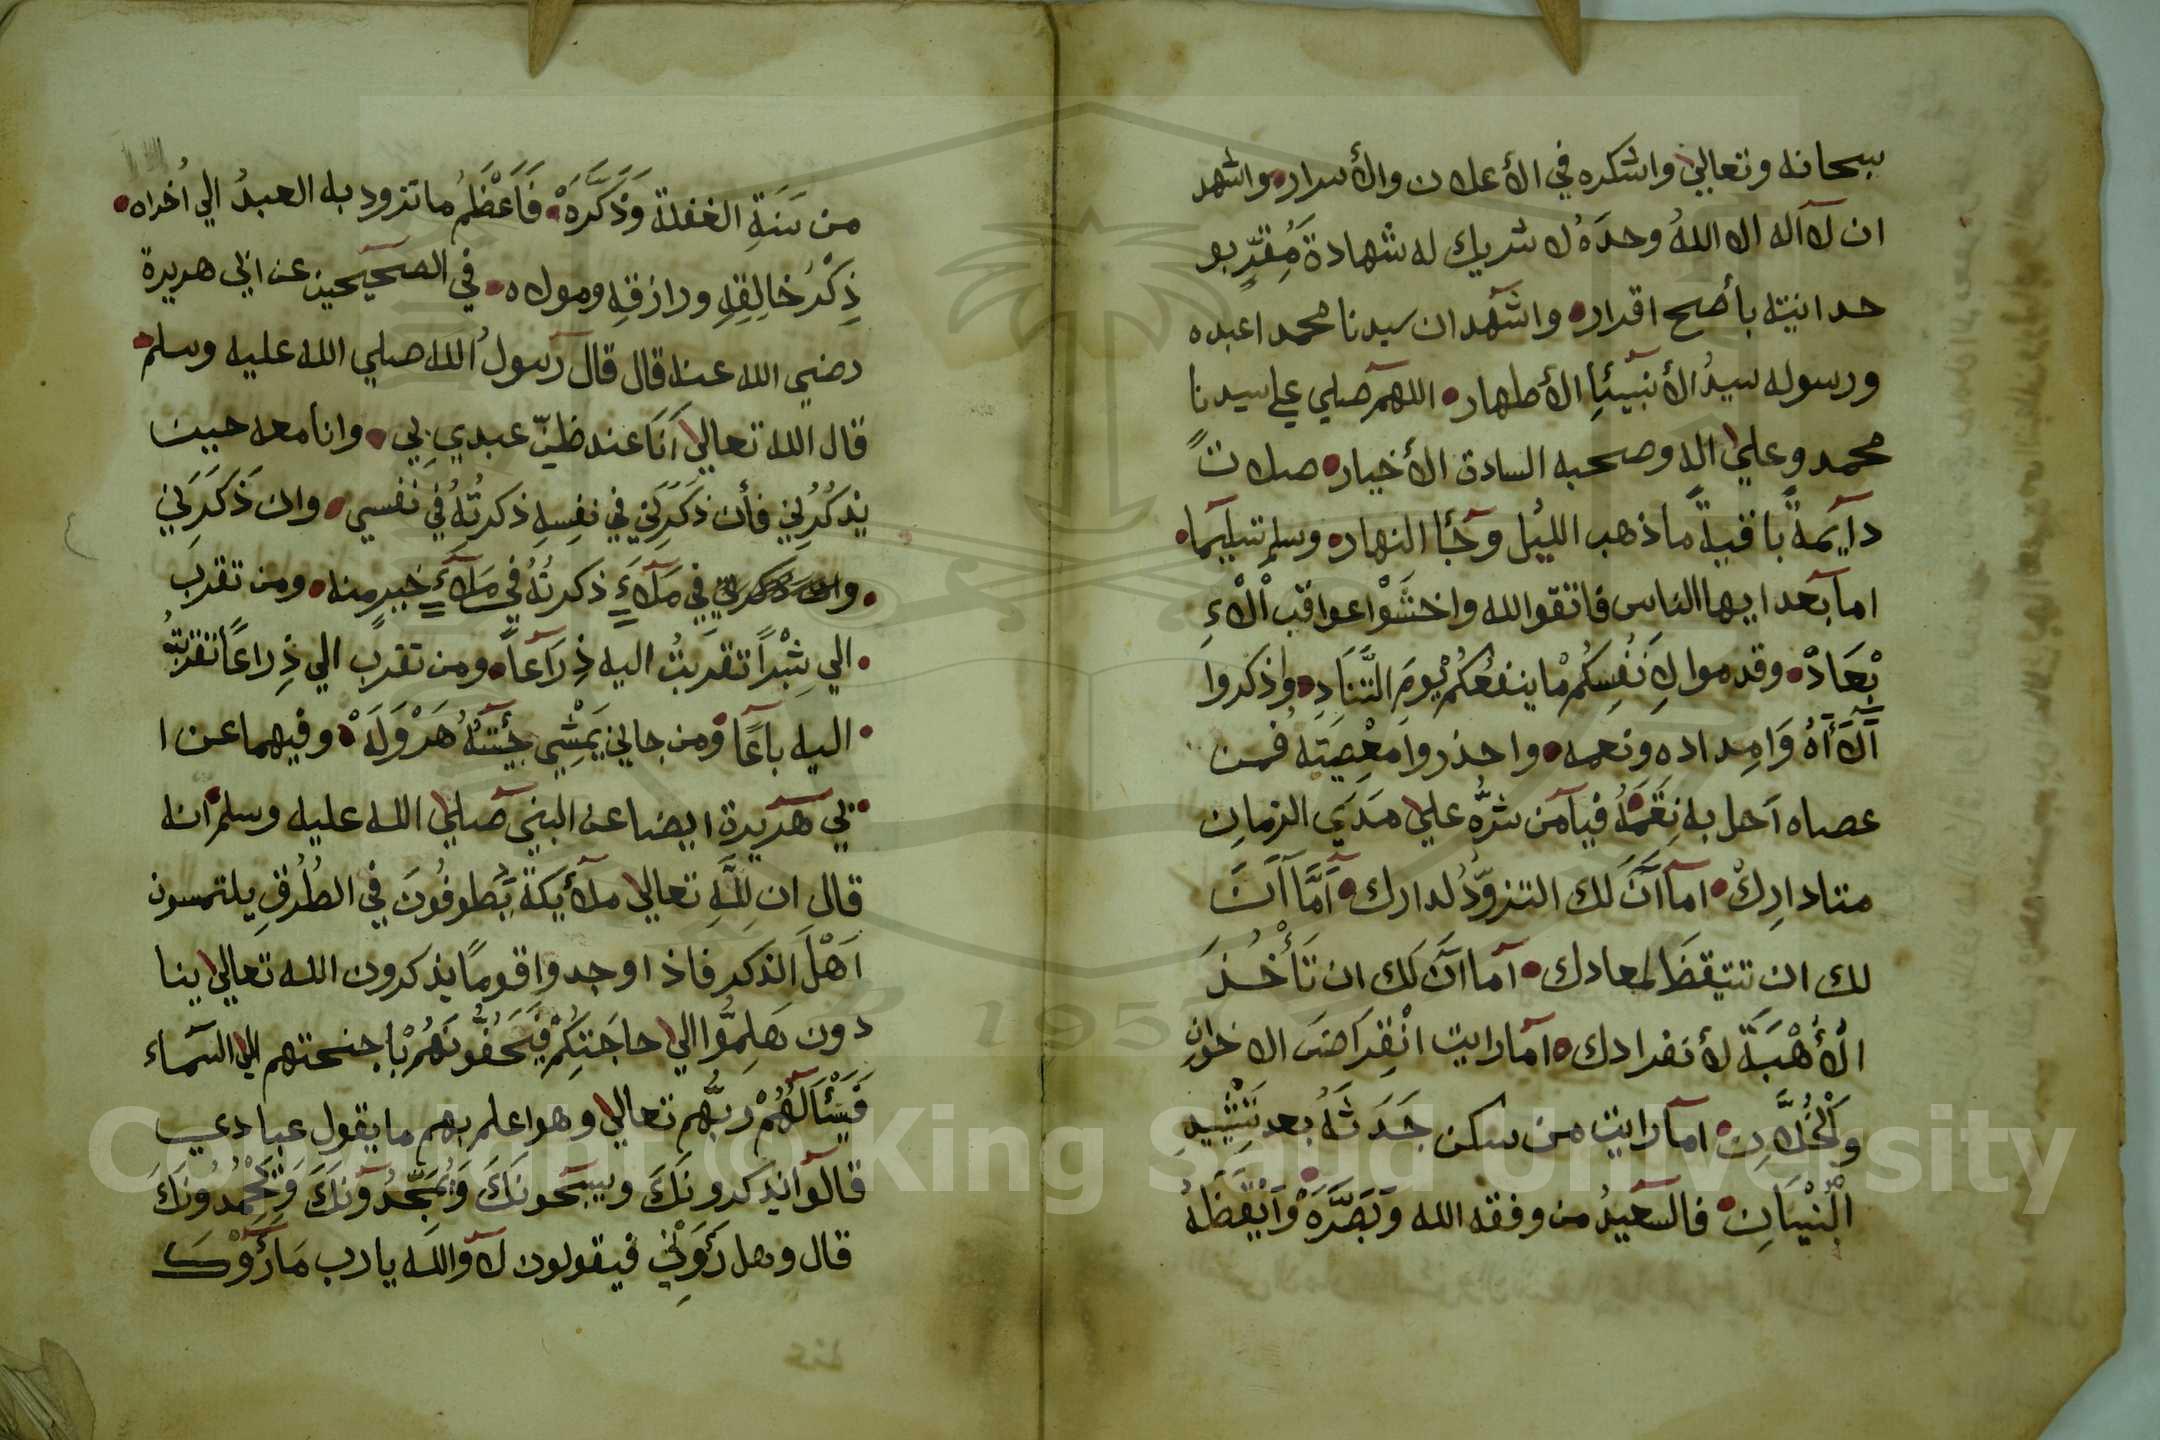 سبحانه وتعالي واشكره في الأعلان والأسرار واشهد
ان لآاله الا اللهُ وحدَهُ لا شريك له شهادةَ مُقِرٍّ بو
حدانيته بأصح اقرار واشهد ان سيدنا محمدا عبده
ورسوله سيدُ الأنبيئاِ الأطهار اللهم صلي علي سيدنا
محمد وعلي الهِ وصحبه السادة الأخيار صلاتً
دآيمةً باقيةً ما ذهب الليُل وجأ النهار وسلم تسليما
اما بعد ايها الناس فاتقوا الله واخشَوْا عواقب اْلاءِ
بْعَادْ وقدموا لِاَنفُسِكُمْ ما ينفعُكُمْ يومَ التَّنَادِ واذكروا
آلَآءَهُ وَامِداده ونعمه واحذروا معْصِيَتِهُ فمن
عصاه آحل به نِقَمَهُ فيآمَن شرُّه علي مَدَي الزمانِ
متنادارِكْ اماآنَ لك التزوّدُ لدارك آمَّا آنَ
لك ان تتيقظَ لمعادك آما آنَ لَك ان تَأْخُذَ
الْأُهْبَةَ لأنفرادك آما رايت انْقِرَاضَ الاخوانِ
وَلْخُلَّانِ آما رايت من سكن جَدَثَهُ بعد تَشْيِيدِ
الْبُنْيَانِ فالسعيدُ من وفقه الله وَبَصَّرَهْ وَاَيْقَظَهُ
من سَنَةِ الغفلة وَذَكَّرَهْ فَاَعْظَمُ ما تزود به العبدُ الي اُخراه
ذِكْرُ خالِقِهِ ورازقهِ ومولاه في الصحيحين عن ابي هريرة
رضي الله عنه قال قال رسولُ الله صلي الله عليه وسلم
قال الله تعالي اَنَا عند ظنِّ عبدي بِي وانا معه حين
يذكُرُنِي فأن ذكَرَنِي في نفسِهِ ذكرتُهُ في نفسي وان ذَكَرَنِي
في مَلَآءٍ ذكرتهُ في مَلَآءٍ خيرٍ منه ومن تقرب
الي شِبْراً تقربتُ اليه ذِرَاَعاً ومن تقرب الي ذِراعًا تقربتُ
اليه باعًا ومن جاني يَمْشِي جِئتهُ هَرْوَلَهْ وفيهما عن ا
بي هريرة ايضا عن النبي صلي الله عليه وسلم انه
قال ان لِلَّهِ تعالي ملأيكة يَطوفُونَ في الطُرُقِ يلتمسون
اَهْلَ الذكر فاذ اوجدوا قومًا يذكرون الله تعالي ينا
دون هَلِمُّوا الي حاجَتِكُمْ فَيَحُفُّونَهُمْ بأجنحتهم الي السماء
فَيَسْئَالُهُمْ ربُّهم تعالي وهو اعلم بهم ما يقول عبادي
قالوا يذكرونَكَ ويسبحونكَ وَيُمَجِّدُونَكَ وَيَحْمِدُونَكَ
قال وهل رَءَوْنِي فيقولون لا والله يارب مَا رَءَوْكَ